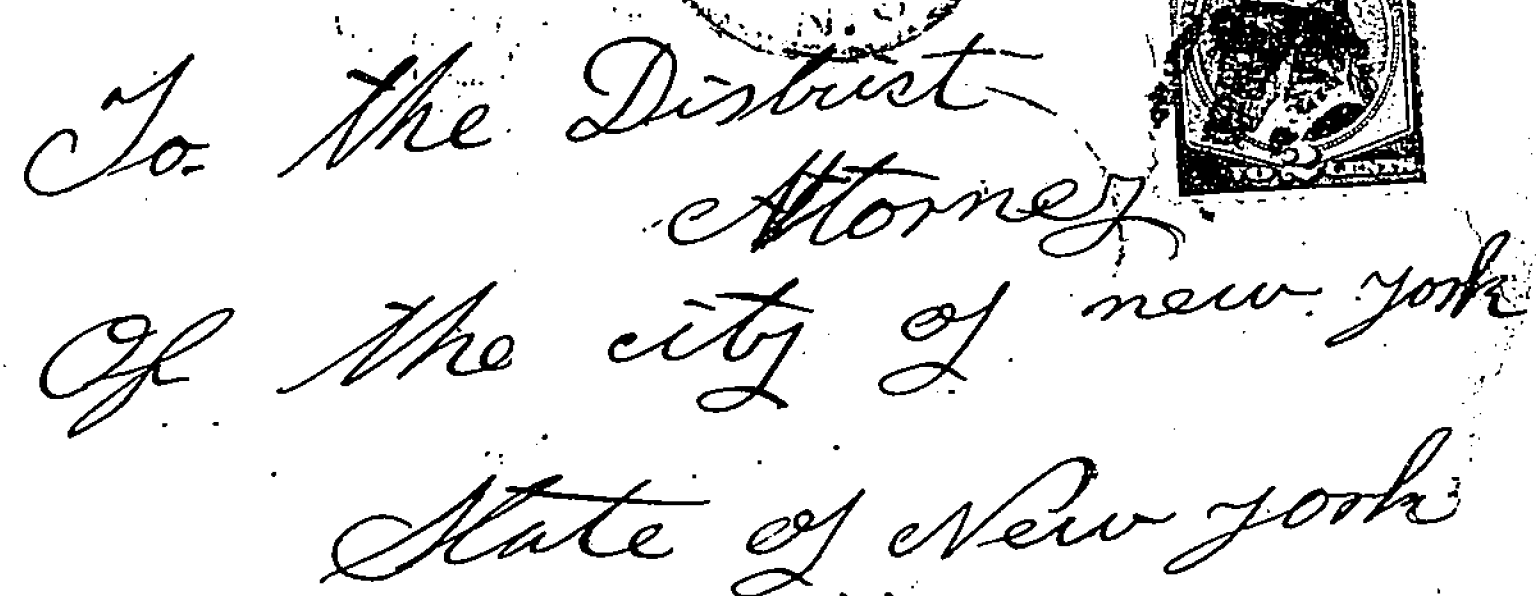 N.O.
To the Distrist
Attorney
Of the city of new york
State of New york